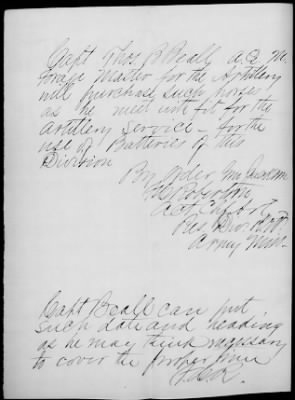 Capt Thos. R Beall A.Q.M.
Forage Master for the Artillery
will purchase such horses
as he meet with fit for the
Artillery Service - for the
use of Batteries of this
Division
By Order
F. Robertson
Act Chf
Res. Div.
Army
Capt Beall can put
such date and heading
as he may think necessary
to cover the proper time